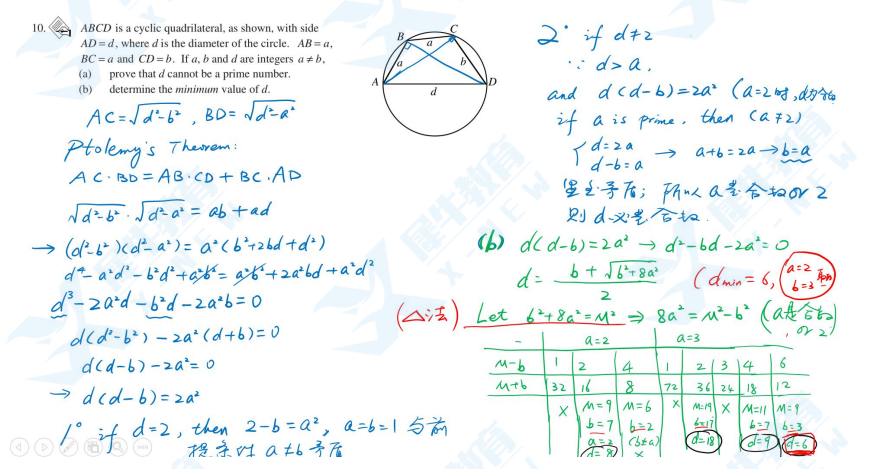 10. ABCD is a cyclic quadrilateral, as shown, with side
AD = d, where d is the diameter of the circle. AB = a,
BC = a and CD = b. If a, b and d are integers a ≠ b,
(a) prove that d cannot be a prime number.
(b) determine the minimum value of d.
B
C
a
a
b
A
D
d
AC=√d²-b² , BD= √d²-a²
Ptolemy's Theorem:
AC·BD = AB·CD + BC·AD
√d²-b² · √d²-a² = ab + ad
→ (d²-b²)(d²-a²) = a²(b²+2bd+d²)
d⁴-a²d²-b²d²+a²b² = a²b²+2a²bd+a²d²
d³-2a²d-b²d-2a²b=0
d(d²-b²)-2a²(d+b)=0
d(d-b)-2a²=0
→ d(d-b)=2a²
1° if d=2, then 2-b=a², a=b=1 与前
提条件 a≠b 矛盾
2° if d≠2
∵ d>a,
and d(d-b)=2a² (a=2时,
if a is prime, then (a≠2)
{ d=2a
d-b=a → a+b=2a → b=a
矛盾; 所以 a是合数or 2
则 d 是合数.
(b) d(d-b)=2a² → d²-bd-2a²=0
d= b+√b²+8a² / 2 (dmin=6, a=2 b=3
(△法) Let b²+8a²=M² ⇒ 8a²=M²-b² (a是合数, or 2)
- a=2 a=3
M-b 1 2 4 1 2 3 4 6
M+b 32 16 8 72 36 24 18 12
X M=9 M=6 X M=19 X M=11 M=9
b=7 b=2 b=17 b=7 b=3
a=2 (b≠a) d=18 d=9 d=6
d=8 X